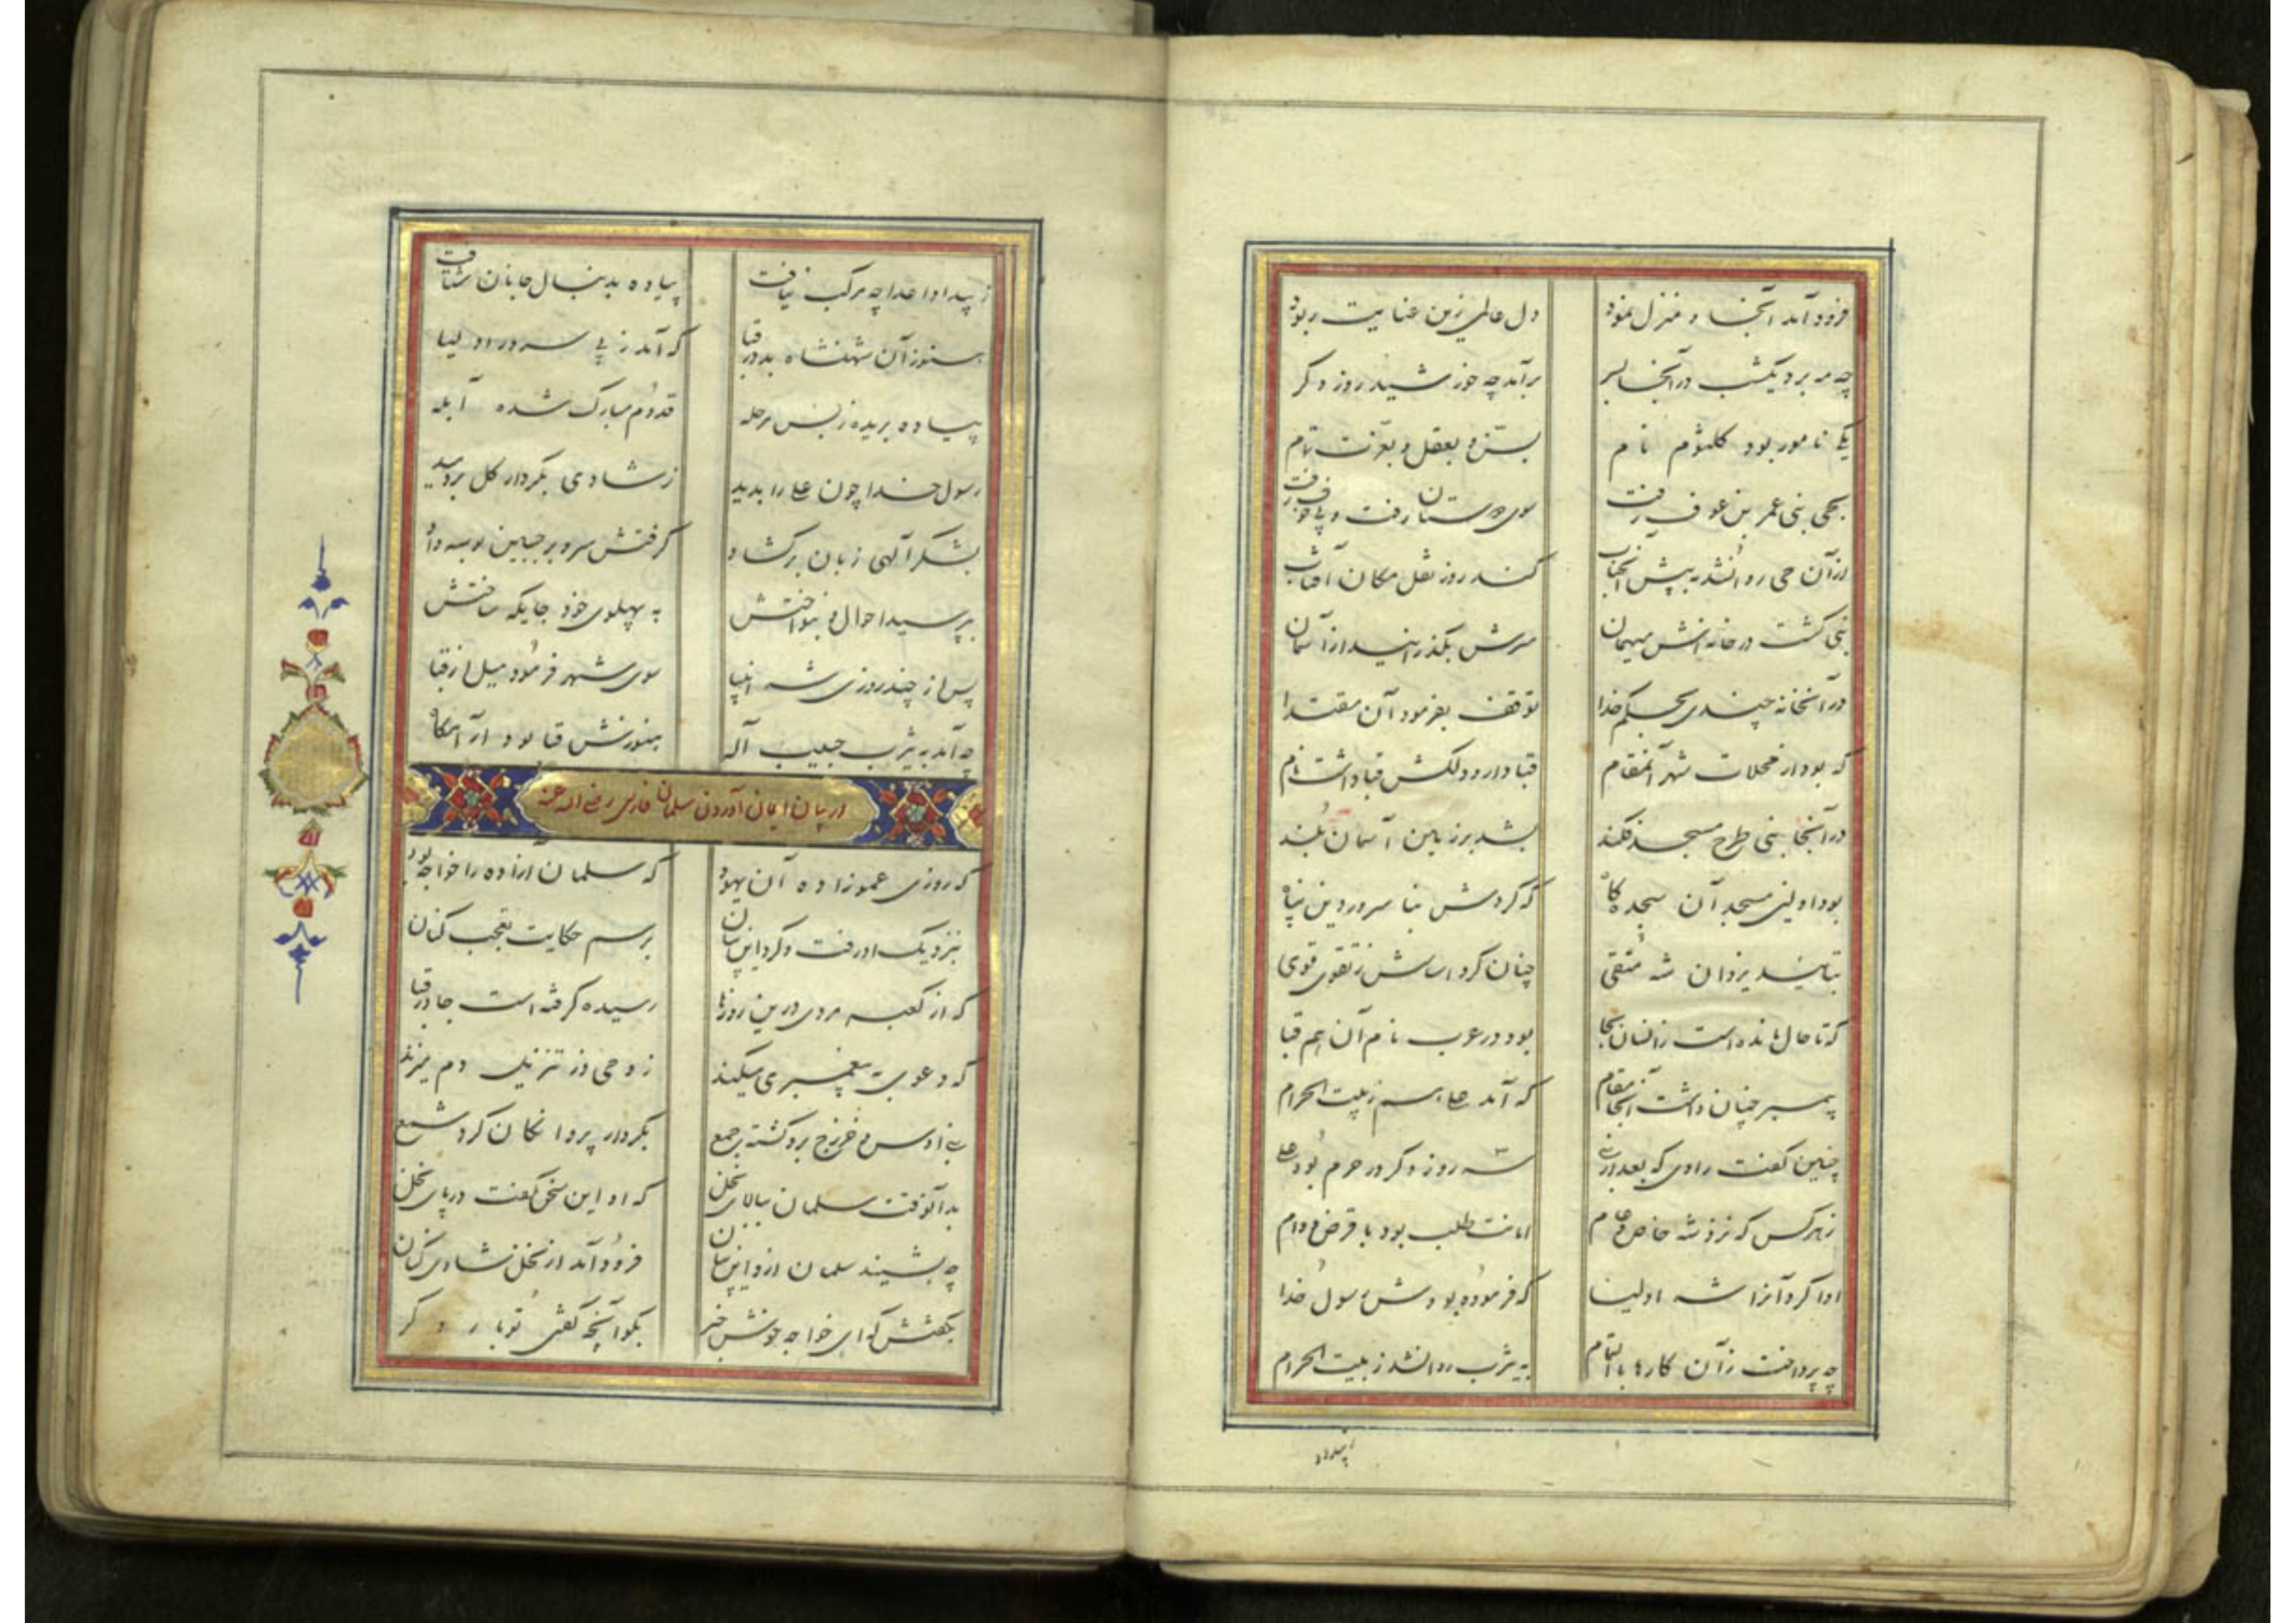 فرود آمد آنجا و منزل نمود دل عالمی زین عنایت ربود
چه مه برد یکشب در آنجا بسر برآمد چه خورشید روز دگر
یکی نامور بود کلثوم نام بستر و بعقل و بعزت تمام
بحی بنی عمر بن عوف رفت سوی دوستان رفت و پی خوف رفت
از آن حی روانشد به پیش آنجناب کند روز نقل مکان آفتاب
نبی گشت در خانه‌اش میهمان سرش بگذرانید از آسمان
در آنخانه چندی بحکم خدا توقف بفرمود آن مقتدا
که بود از محلات شهر آنمقام قبا دارو دلکش قبا داشت نام
در آنجا نبی طرح مسجد فکند بشد برزمین آسمان بلند
بود اولین مسجد آن سجده گاه که کردش بنا سرور دین پناه
بتائید یزدان شه متقی چنان کرد اساسش ز تقوی قوی
که تا حال مانده است زانسان بجا بود در عرب نام آن هم قبا
پیمبر چنان داشت آنجا مقام که آمد علی هم ز بیت الحرام
چنین گفت راوی که بعد از نبی سه روز دگر در حرم بود علی
زهر کس که نزد شه خاص و عام امانت طلب بود با قرض و وام
ادا کرد آنرا شه اولیا که فرموده بودش رسول خدا
چه پرداخت زآن کارها بالتمام به یثرب روانشد ز بیت الحرام
ز بیداد
ز بیداد اعدا چه مرکب نیافت پیاده بدنبال جانان شتافت
هنوز آن شهنشاه بد در قبا که آمد ز پی سرور اولیا
پیاده بریده ز بس مرحله قدوم مبارک شده آبله
رسول خدا چون علی را بدید ز شادی بکردار گل بردمید
بشکر آلهی زبان برگشاد گرفتش سر و بر جبین بوسه داد
بپرسید احوال و بنواختش به پهلوی خود جایگه ساختش
پس از چند روزی شه انبیا سوی شهر فرمود میل از قبا
چه آمد به یثرب حبیب آله هنوزش قبا بود آرامگاه
در بیان ایمان آوردن سلمان فارسی رضی الله عنه
که روزی عموزاده آن یهود که سلمان آزاده را خواجه بود
بنزدیک او رفت و کرد این بیان برسم حکایت تعجب کنان
که از کعبه مردی درین روزها رسیده گرفته است جا در قبا
که دعوی پیغمبری میکند ز وحی و ز تنزیل دم میزند
بنی اوس و خزرج برو گشته جمع بکردار پروانگان گرد شمع
بد آنوقت سلمان ببالای نخل که او این سخن گفت در پای نخل
چه بشنید سلمان ازو این بیان فرود آمد از نخل شادی کنان
بگفتش که ای خواجه خوش خبر بگو آنچه گفتی تو بار دگر